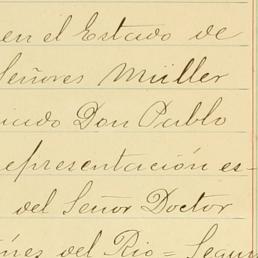 en el Estado de
Señores Müller
Don Pablo
representación es-
del Señor Doctor
del Rio = Segun